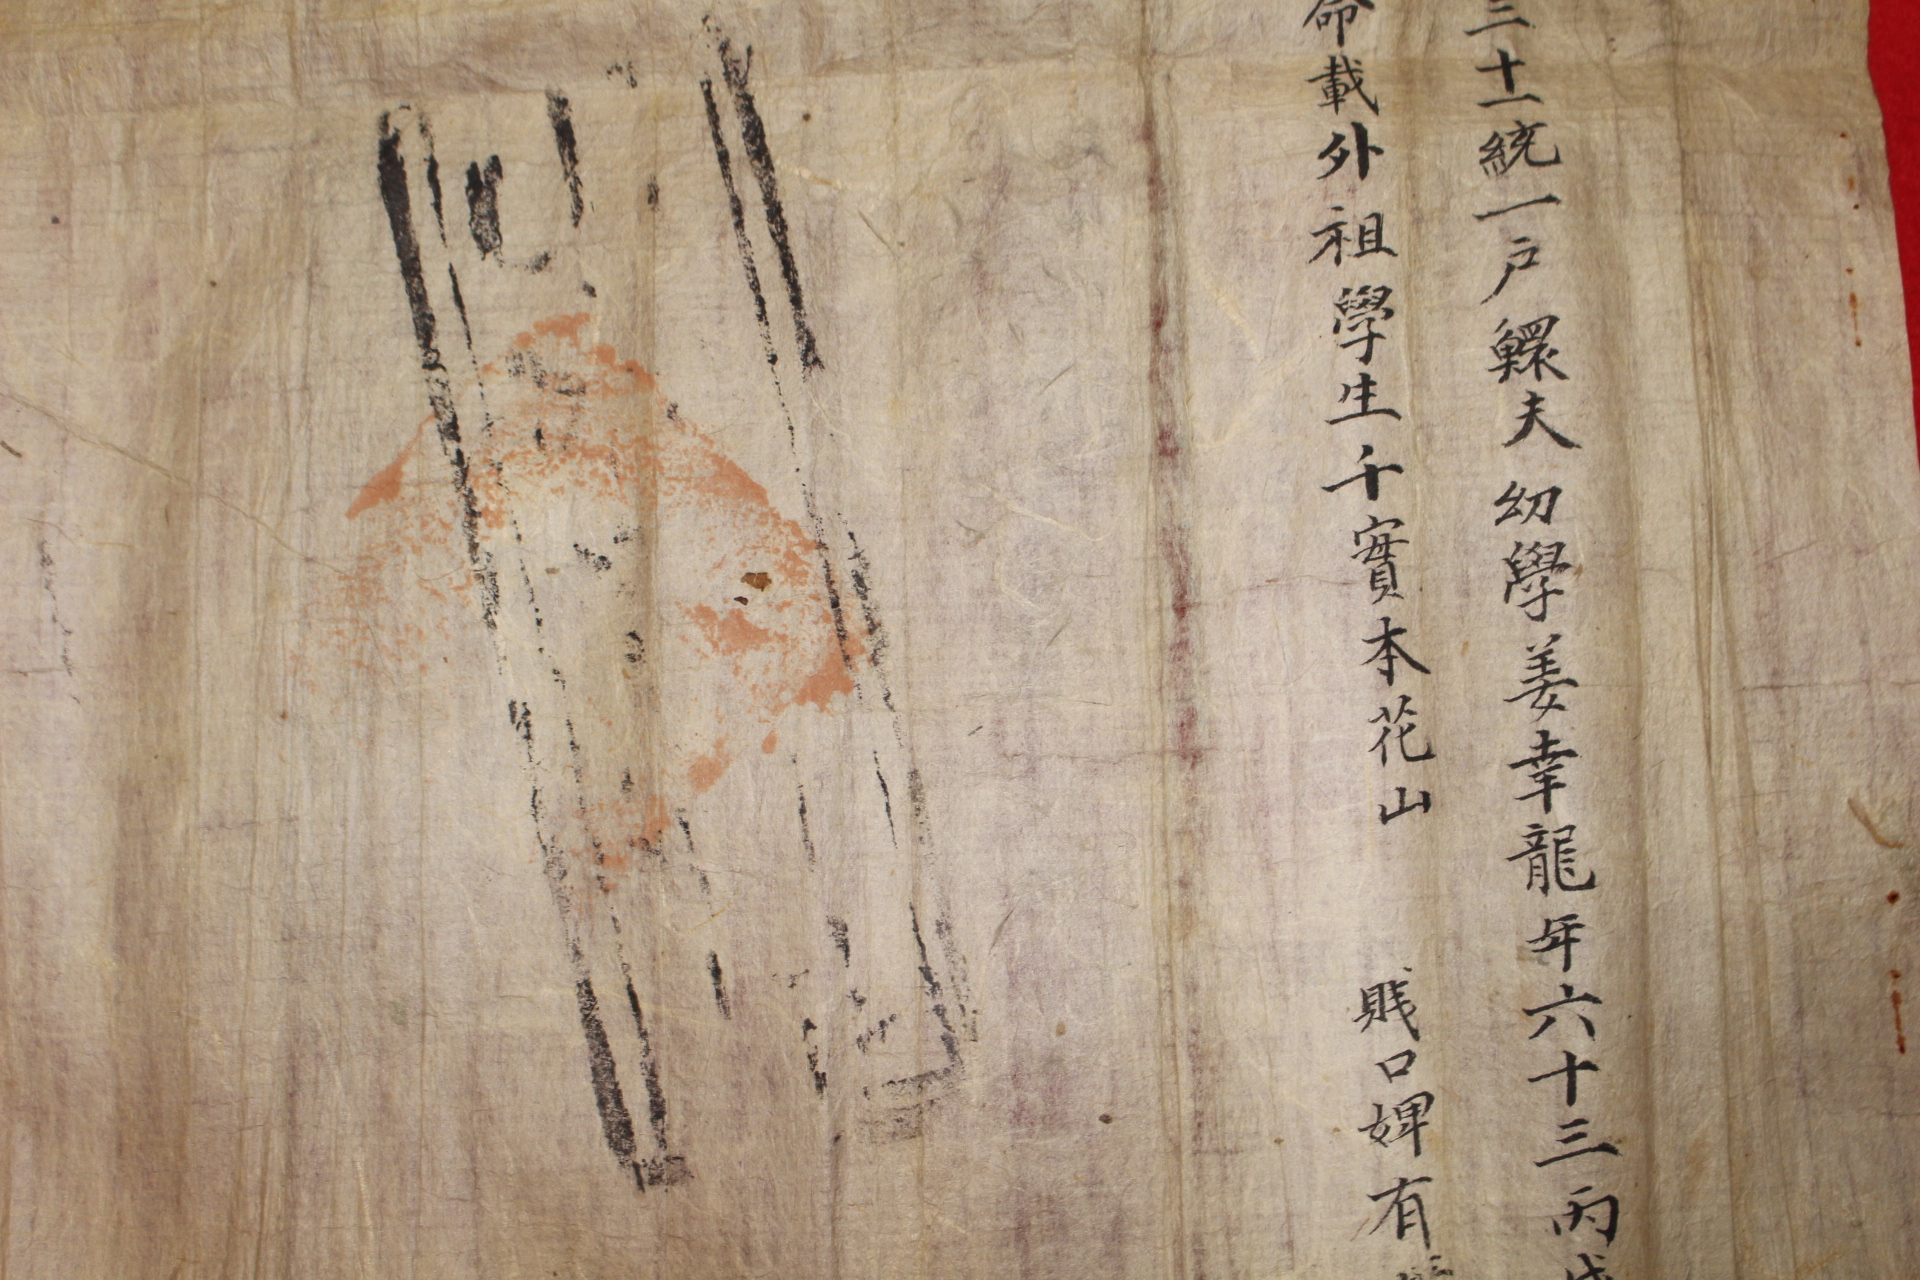 三十一統一戶鰥夫幼學姜幸龍年六十三丙戌
命載外祖學生千實本花山 賎口婢有